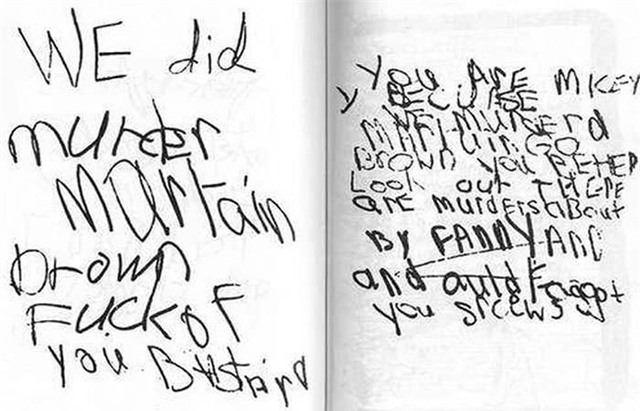 WE did
murder
martain
brown
Fuckof
you BAstArd
You ArE micEy
y BEcuisE
WE murdErd
MArtain GO
Brown you BEtEr
Look out THErE
arE murdErs about
By FANNYANd
and auld Faggot
you srcews